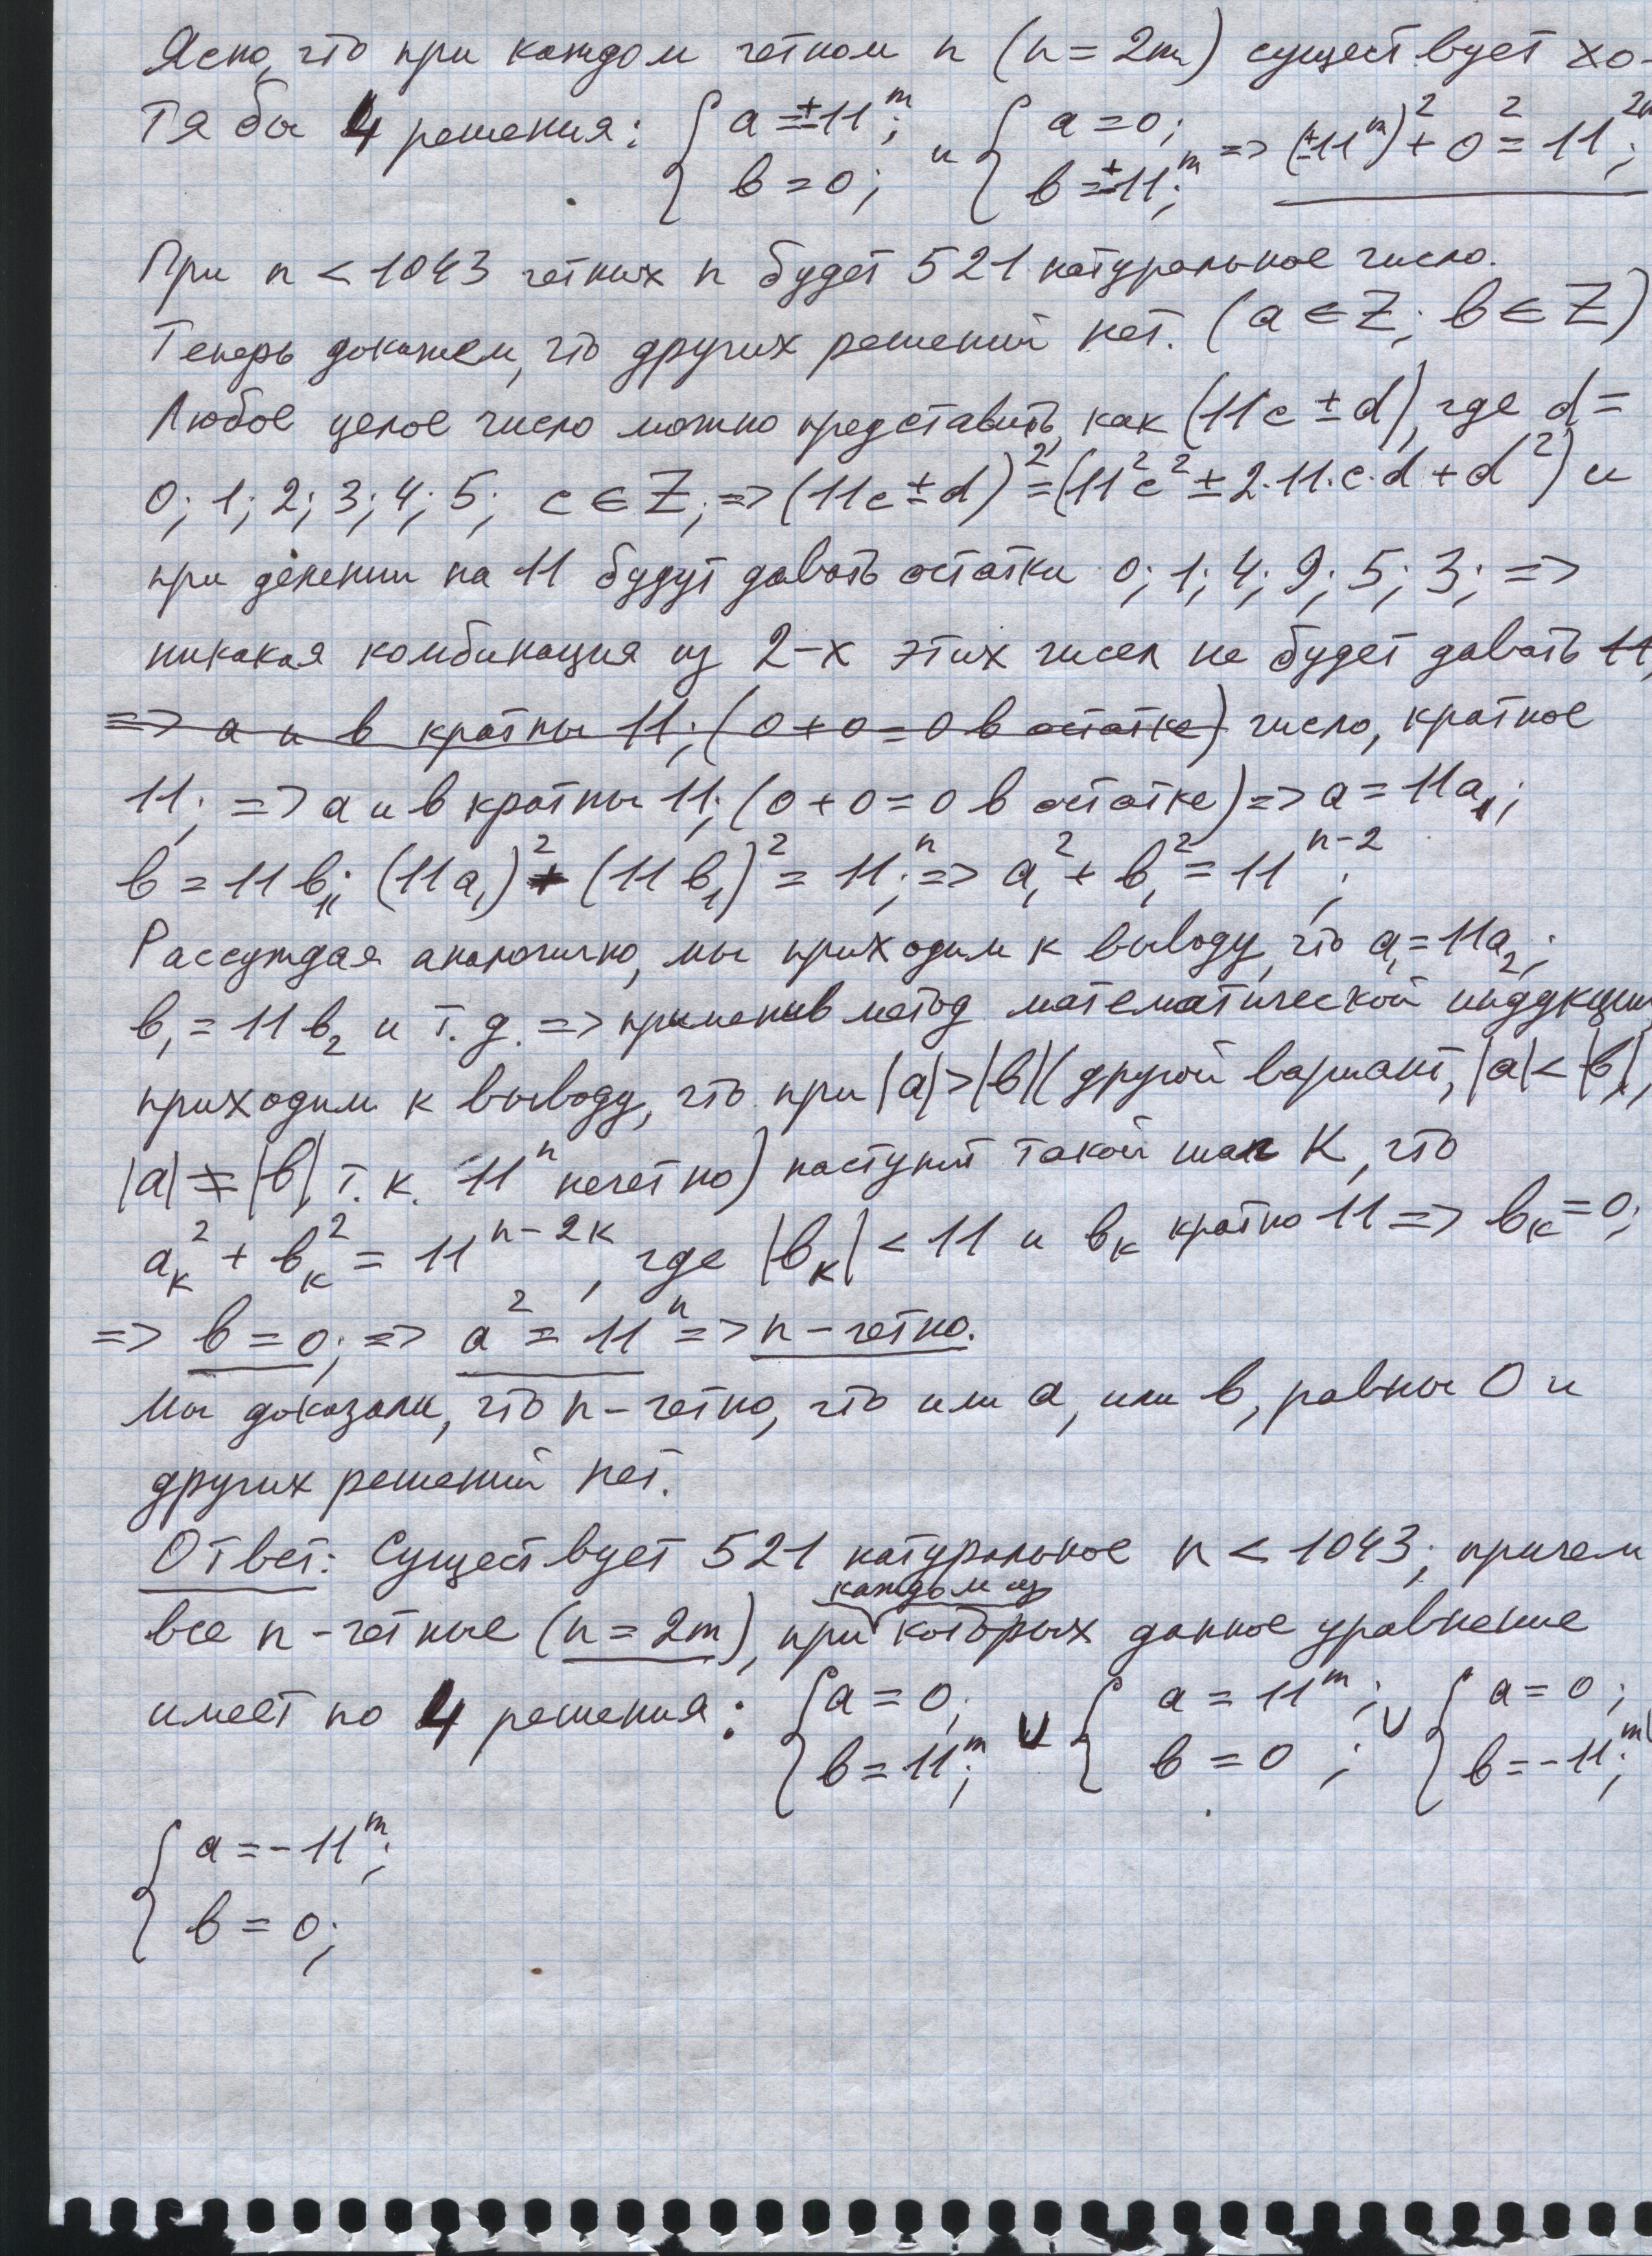 Ясно, что при каждом четном n (n = 2m) существует хо-
тя бы 4 решения: { a = ±11^m; b = 0; и { a = 0; b = ±11^m; => (±11^m)² + 0² = 11^2m;
При n < 1043 четных n будет 521 натуральное число.
Теперь докажем, что других решений нет. (a ∈ Z; b ∈ Z)
Любое целое число можно представить, как (11c ± d), где d =
0; 1; 2; 3; 4; 5; c ∈ Z; => (11c ± d)² = (11²c² ± 2·11·c·d + d²) и
при делении на 11 будут давать остатки 0; 1; 4; 9; 5; 3; =>
никакая комбинация из 2-х этих чисел не будет давать 11,
=> a и b кратны 11; (0 + 0 = 0 в остатке) число, кратное
11; => a и b кратны 11; (0 + 0 = 0 в остатке) => a = 11a₁;
b = 11b₁; (11a₁)² + (11b₁)² = 11^n; => a₁² + b₁² = 11^n-2;
Рассуждая аналогично, мы приходим к выводу, что a₁ = 11a₂;
b₁ = 11b₂ и т. д. => применив метод математической индукции
приходим к выводу, что при |a| > |b| (другой вариант, |a| < |b|,
|a| ≠ |b|, т. к. 11^n нечетно) наступит такой шаг K, что
a_k² + b_k² = 11^n-2k, где |b_k| < 11 и b_k кратно 11 => b_k = 0;
=> b = 0; => a² = 11^n => n - четно.
Мы доказали, что n - четно, что или a, или b, равны 0 и
других решений нет.
Ответ: Существует 521 натуральное n < 1043; причем
каждом из
все n - четные (n = 2m), при которых данное уравнение
имеет по 4 решения: { a = 0; b = 11^m; ∪ { a = 11^m; b = 0; ∪ { a = 0; b = -11^m;
{ a = -11^m;
b = 0;